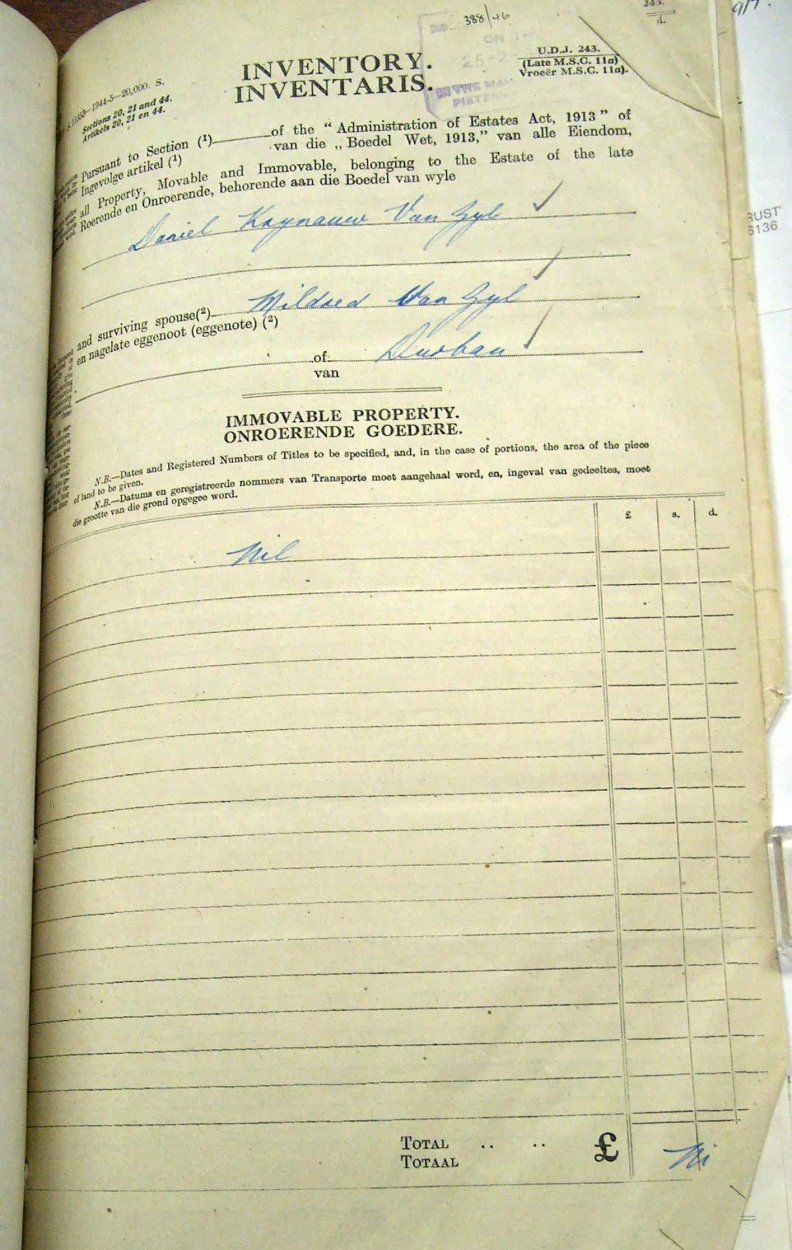 388/46
243.
d.
917.
U.D.J. 243.
(Late M.S.C. 11a)
Vroeër M.S.C. 11a).
ON TH
25-2
IN THE MA
PIETER
1944-5—20,000. S.
Sections 20, 21 and 44.
Artikels 20, 21 en 44.
INVENTORY.
INVENTARIS.
Pursuant to Section (¹) of the " Administration of Estates Act, 1913 " of
Ingevolge artikel (¹) van die „ Boedel Wet, 1913," van alle Eiendom,
all Property, Movable and Immovable, belonging to the Estate of the late
Roerende en Onroerende, behorende aan die Boedel van wyle
Daniel Kaynauw Van Zyl
and surviving spouse(²) Mildred Van Zyl
en nagelate eggenoot (eggenote) (²)
of Durban
van
IMMOVABLE PROPERTY.
ONROERENDE GOEDERE.
N.B.—Dates and Registered Numbers of Titles to be specified, and, in the case of portions, the area of the piece
of land to be given.
N.B.—Datums en geregistreerde nommers van Transporte moet aangehaal word, en, ingeval van gedeeltes, moet
die grootte van die grond opgegee word.
£ s. d.
Nil
TOTAL .. .. £ Ni
TOTAAL
RUST
6136